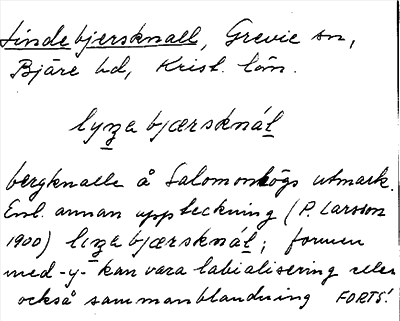 Lindebjersknall, Grevie sn,
Bjäre hd, Krist. län.
lyza bjærsknál
bergknalle å Salomonhögs utmark.
Enl. annan uppteckning (P. Larsson
1900) liza bjærsknál; formen
med -y- kan vara labialisering eller
också sammanblandning FORTS!